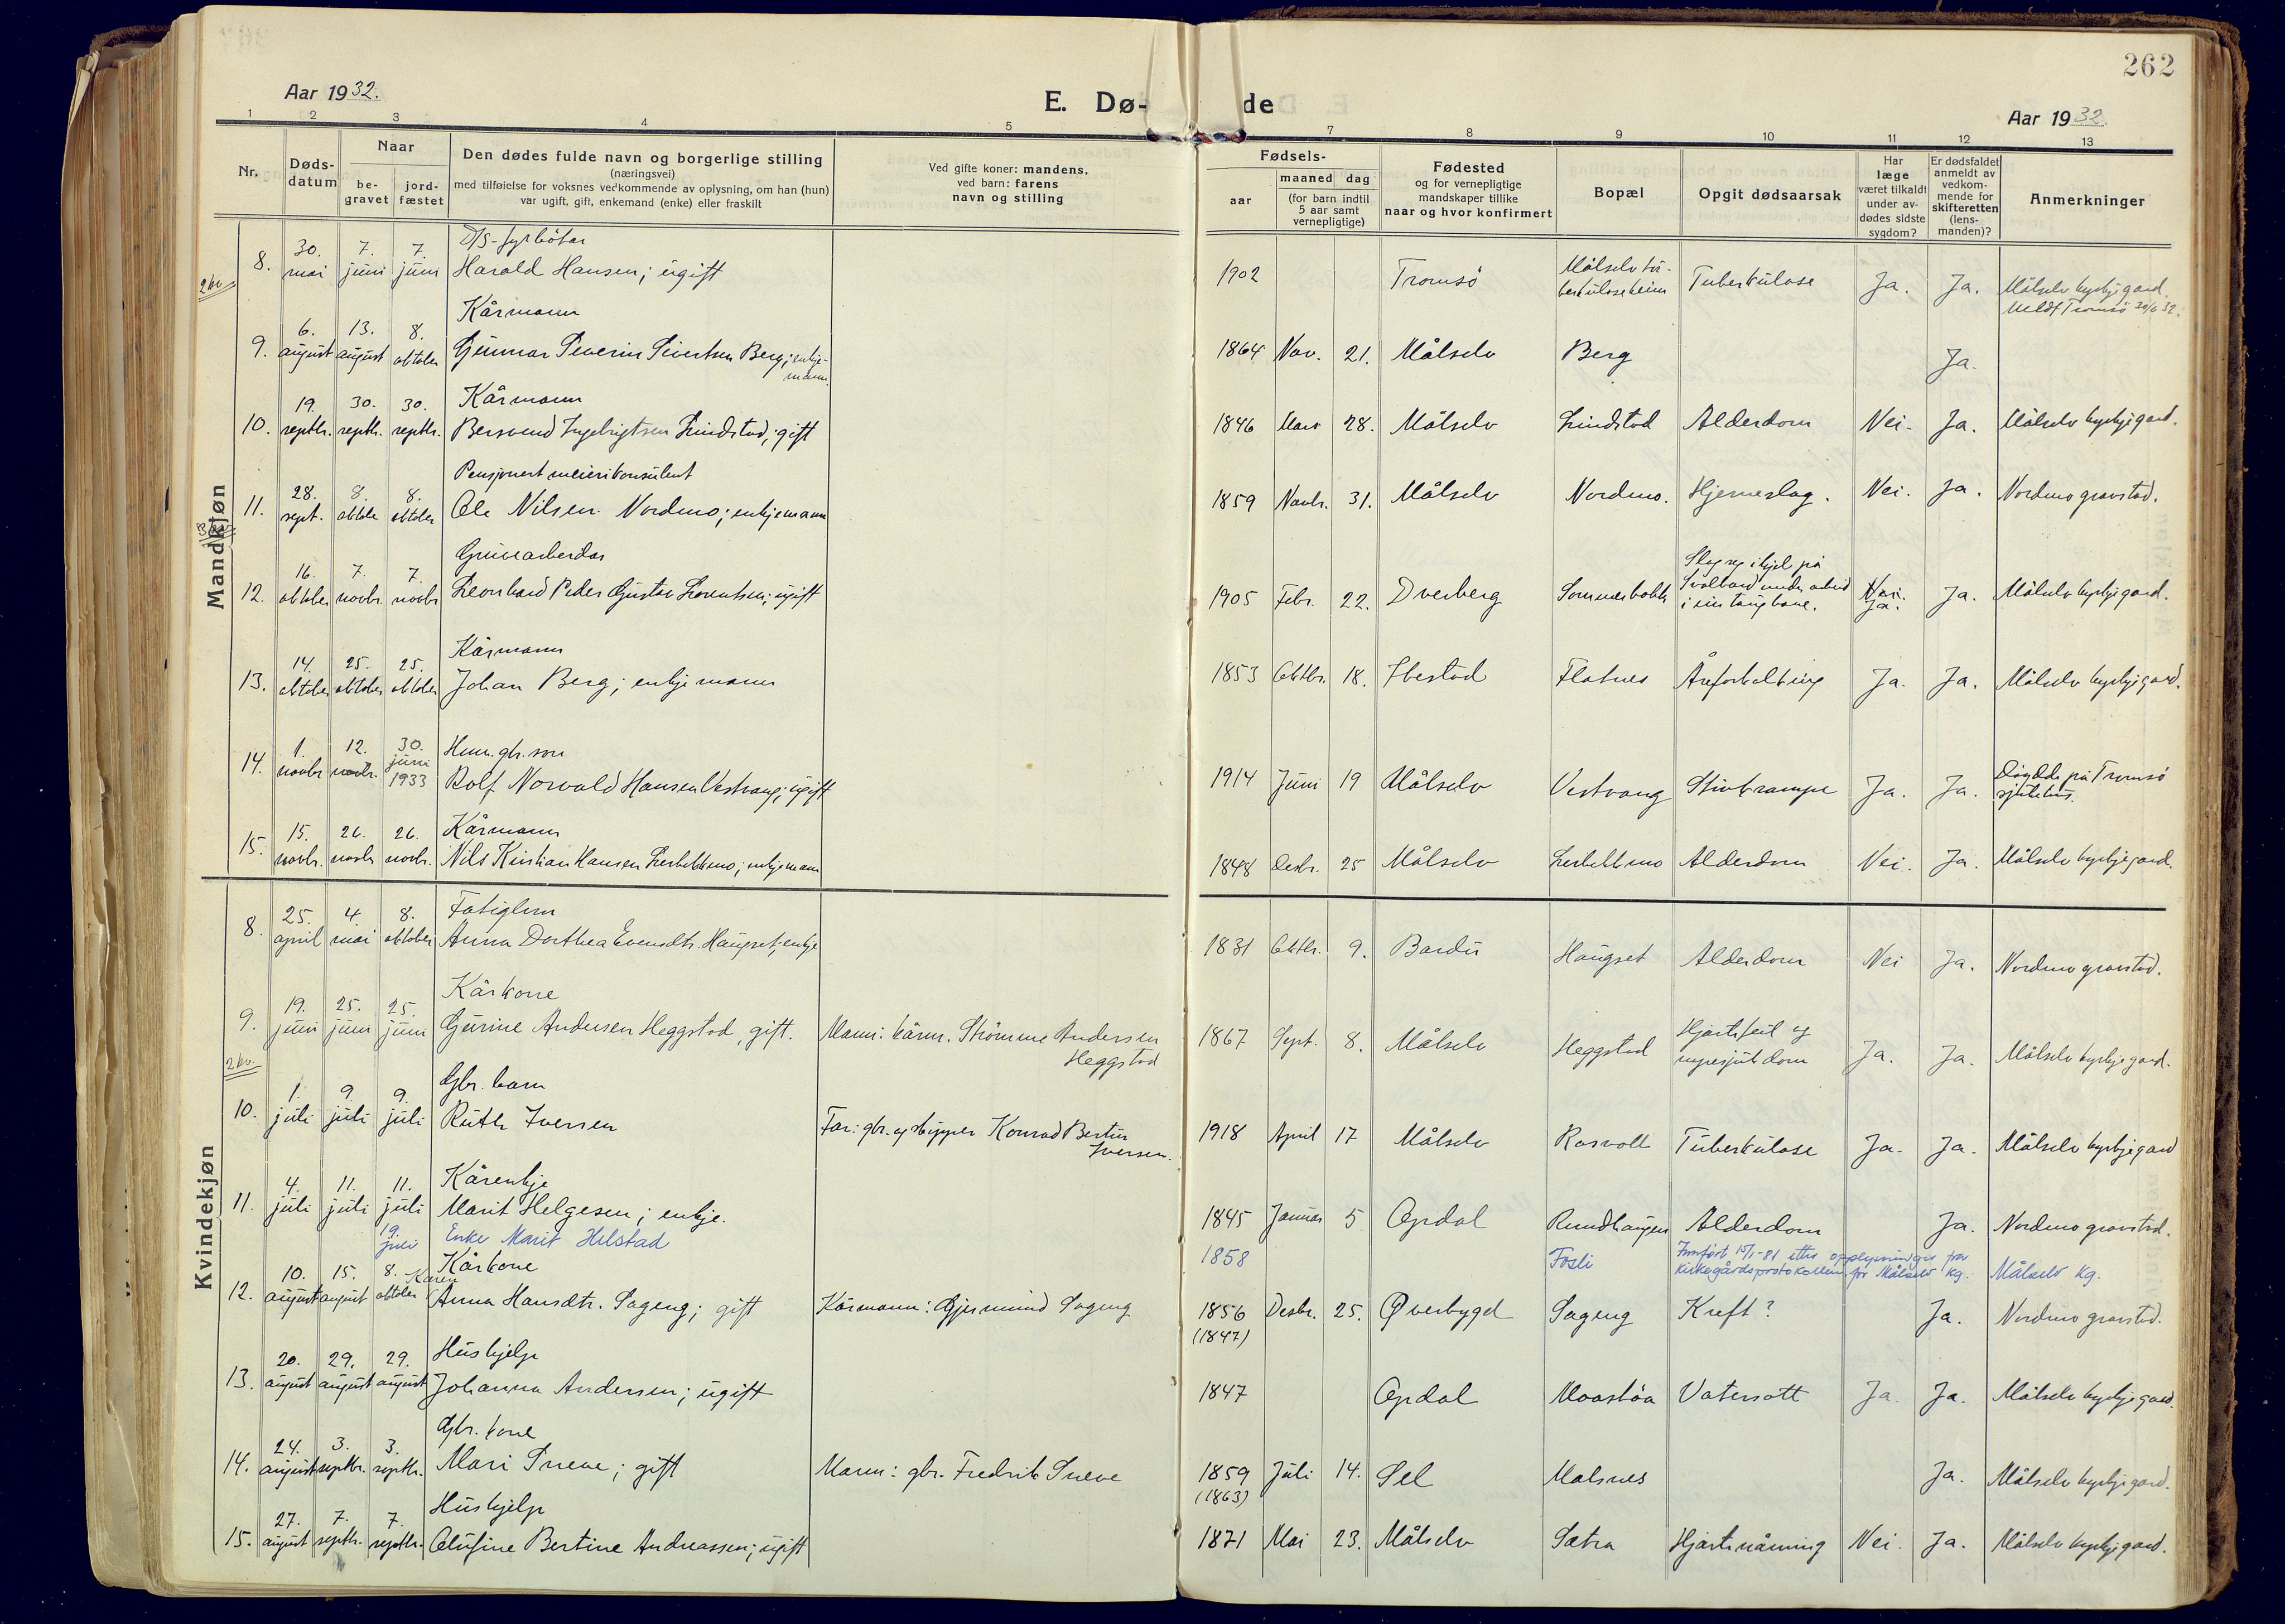 262
Aar 1932.
E. Dø-
de
Aar 1932.
1 2 3 4 5 7 8 9 10 11 12 13
Nr.
Døds-
datum
Naar
be-
gravet
jord-
fæstet
Den dødes fulde navn og borgerlige stilling
(næringsvei)
med tilføielse for voksnes vedkommende av oplysning, om han (hun)
var ugift, gift, enkemand (enke) eller fraskilt
Ved gifte koner: mandens,
ved barn: farens
navn og stilling
Fødsels-
aar
maaned dag
(for barn indtil
5 aar samt
vernepligtige)
Fødested
og for vernepligtige
mandskaper tillike
naar og hvor konfirmert
Bopæl
Opgit dødsaarsak
Har
læge
været tilkaldt
under av-
dødes sidste
sygdom?
Er dødsfaldet
anmeldt av
vedkom-
mende for
skifteretten
(lens-
manden)?
Anmerkninger
Mandkjøn
D/S-fyrbøtar
8. 30. mai 7. juni 7. juni Harald Hansen; ugift 1902 Tromsö Målselv tu-
berkuloseheim Tuberkulose Ja. Ja. Målselv kyrkjegard.
Meldt Tromsö
Kårmann
9. 6. august 13. august 8. oktober Gunnar Severin Sivertsen Berg; enkje-
mann. 1864 Nov. 21. Målselv Berg Ja.
Kårmann
10. 19. septbr. 30. septbr. 30. septbr. Ingebrigtsen Lindstad; gift 1846 Mars 28. Målselv Lindstad Alderdom Nei. Ja. Målselv kyrkjegard.
Pensjonert meierikonsulent
11. 28. sept. 8. oktober 8. oktober Ole Nilsen Nordmo; enkjemann 1859 Novbr. 31. Målselv Nordmo. Hjerneslag. Nei. Ja. Nordmo gravstad.
Gruvearbeidar
12. 16. oktober 7. novbr. 7. novbr Leonhard Peder Gustav Lorentsen; ugift 1905 Febr. 22. Dverberg Slog seg ihjel på
Svalbard under arbeid
i ein taugbane. Nei.
Ja. Ja. Målselv kyrkjegard.
Kårmann
13. 14. oktober 25. oktober 25. oktober Johan Berg; enkjemann 1853 Oktbr. 18. Ibestad Flatnes Åreforkalking Ja. Ja. Målselv kyrkjegard.
14. 1. novbr 12. novbr. 30. juni 1933 gbr. son
Rolf Norvald Hansen Vestvang; ugift 1914 Juni 19 Målselv Vestvang Stivkrampe Ja. Ja. Døydde på Tromsö
sjukehus.
Kårmann
15. 15. novbr. 26. novbr 26. novbr. Nils Kristian Hansen enkjemann 1848 Desbr. 25 Målselv Alderdom Nei. Ja. Målselv kyrkjegard.
Kvindekjøn
Fatiglem
8. 25. april 4. mai 8. oktober Anna Dorthea Evensdtr. Haugset; enkje 1831 Oktbr. 9. Bardu Haugset Alderdom Nei Ja. Nordmo gravstad.
Kårkone
9. 19. juni 25. juni 25. juni Gurine Andersen Heggstad, gift. Mann: kårm. Strömme Andersen
Heggstad 1867 Sept. 8. Målselv Heggstad Hjartefeil og
nyresjukdom Ja. Ja. Målselv kyrkjegard.
Gbr. barn
10. 1. juli 9. juli 9. juli Ruth Iversen Far: gbr. og skipper Konrad Bertin
Iversen. 1918 April 17 Målselv Rosvoll Tuberkulose Ja. Ja. Målselv kyrkjegard
Kårenkje
11. 4. juli 11. juli 11. juli Marit Helgesen; enkje. 1845 Januar 5 Opdal Rundhaugen Alderdom Ja. Nordmo gravstad.
19. juli Enke Marit Helstad 1858 Fosli Innført 15/1-81 etter opplysninger fra
kirkegårdsprotokollen for Målselv kg. Målselv kg.
Kårkone
12. 10. august 15. august 8. oktober Karen
Anna Hansdtr. Sageng; gift Kårmann: Gjermund Sageng 1856 Desbr. 25. Øverbygd Sageng Kreft? Ja. Nordmo gravstad.
(1847)
Hushjelp
13. 20. august 29. august 29. august Johanna Andersen; ugift 1847 Opdal Moastöa Vatersott Ja. Ja. Målselv kyrkjegard.
Gbr. kone
14. 24. august 3. septbr. 3. septbr. Mari Sneve; gift Mann: gbr. Fredrik Sneve 1859 Juli 14. Sel Målsnes Ja. Målselv kyrkjegard.
(1863)
Hushjelp
15. 27. august 7. septbr. 7. septbr. Olufine Bertine Andreassen; ugift 1871 Mai 23. Målselv Sætra Hjartelåming Nei. Ja. Målselv kyrkjegard.